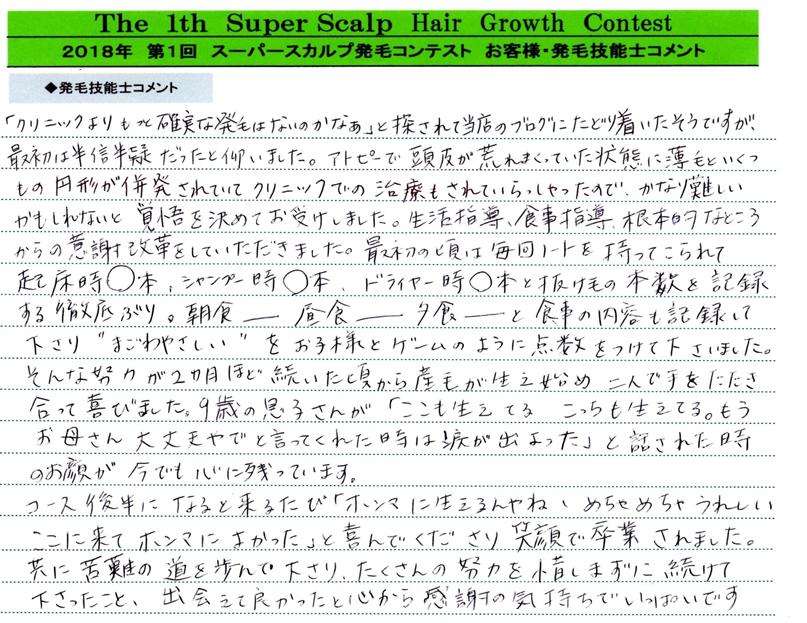 The 1th Super Scalp Hair Growth Contest
2018年 第1回 スーパースカルプ発毛コンテスト お客様・発毛技能士コメント
◆発毛技能士コメント
「クリニックよりもっと確実な発毛はないのかなぁ」と探されて当店のブログにたどり着いたそうですが、
最初は半信半疑だったと仰いました。アトピーで頭皮が荒れまくっていた状態に薄毛といくつ
もの円形が併発されていてクリニックでの治療もされていらっしゃったので、かなり難しい
かもしれないと覚悟を決めてお受けしました。生活指導、食事指導、根本的なところ
からの意識改革をしていただきました。最初の頃は毎回ノートを持ってこられて
起床時〇本、シャンプー時〇本、ドライヤー時〇本と抜け毛の本数を記録
する徹底ぶり。朝食― 昼食― 夕食―と食事の内容も記録して
下さり"まごわやさしい"をお子様とゲームのように点数をつけて下さいました。
そんな努力が2カ月ほど続いた頃から産毛が生え始め二人で手をたたき
合って喜びました。9歳の息子さんが「ここも生えてる こっちも生えてる。もう
お母さん大丈夫やでと言ってくれた時は涙が出よった」と話された時
のお顔が今でも心に残っています。
コース後半になると来るたび「ホンマに生えるんやね、めちゃめちゃうれしい
ここに来てホンマによかった」と喜んでくださり笑顔で卒業されました。
共に苦難の道を歩んで下さり、たくさんの努力を惜しまずに続けて
下さったこと、出会えて良かったと心から感謝の気持ちでいっぱいです